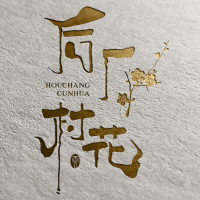 后厂
HOUCHANG
CUNHUA
村花